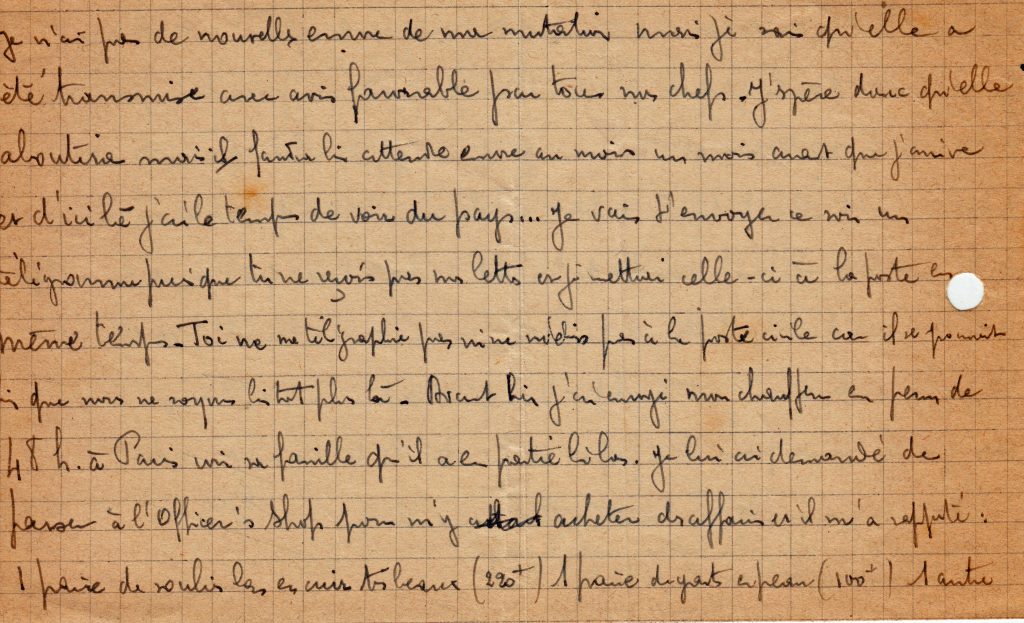 Je n'ai pas de nouvelles encore de ma mutation mais je sais qu'elle a
été transmise avec avis favorable par tous mes chefs. J'espère donc qu'elle
aboutira mais il faudra bien attendre encore au moins un mois avant que j'arrive
et d'ici là j'ai le temps de voir du pays... Je vais t'envoyer ce soir un
télégramme puisque tu ne reçois pas mes lettres et je mettrai celle-ci à la poste en
même temps. Toi ne me télégraphie pas ni ne m'écris pas à la poste civile car il se pourrait
que nous ne soyons bientôt plus là. Avant hier j'ai envoyé mon chauffeur en perm de
48 h. à Paris voir sa famille qu'il a en partie là bas. Je lui ai demandé de
passer à l'Officer's Shop pour m'y acheter des affaires et il m'a rapporté :
1 paire de souliers bas en cuir très beaux (220f) 1 paire de gants en peau (100f) 1 autre